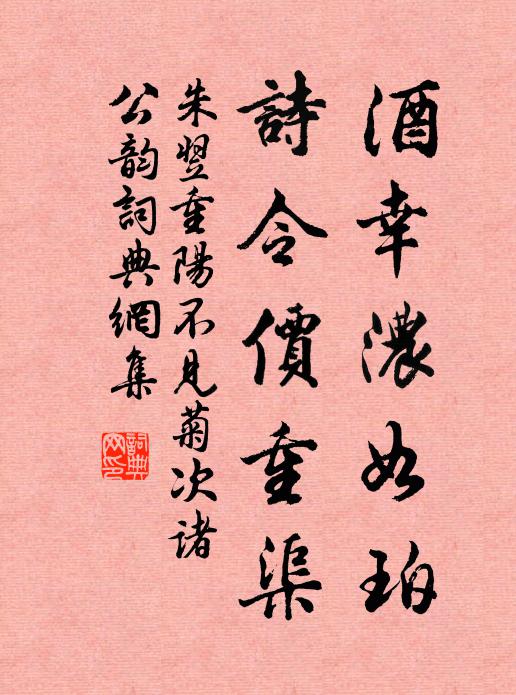 酒幸濃如珀
詩令價重渠
朱翌重陽不見菊次諸
公韵詞典網集
詞典
网印